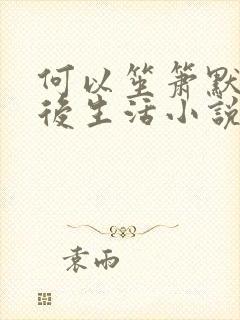 何以笙簫默
後生活小說
袁雨